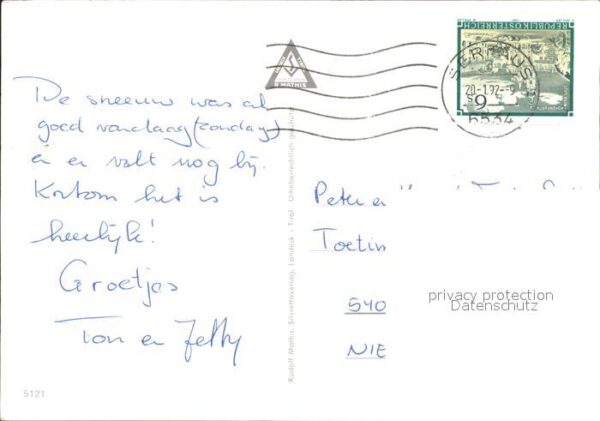 De sneeuw was al
goed vandaag (zondag)
en er valt nog bij.
Kortom het is
heerlijk!
Groetjes
Ton en Jetty
5121
Rudolf Mathis, Silvrettaverlag, Landeck - Tirol. Urheberrechtlich geschützt
R MATHIS
REPUBLIK ÖSTERREICH
SERFAUS
20.-1.92--9
6534
Peter e
Toetin
540
NIE
privacy protection
Datenschutz